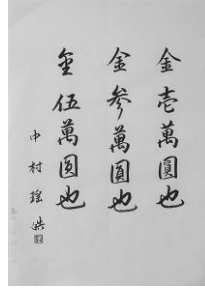 金壱萬圓也
金参萬圓也
金伍萬圓也
中村瑶浩